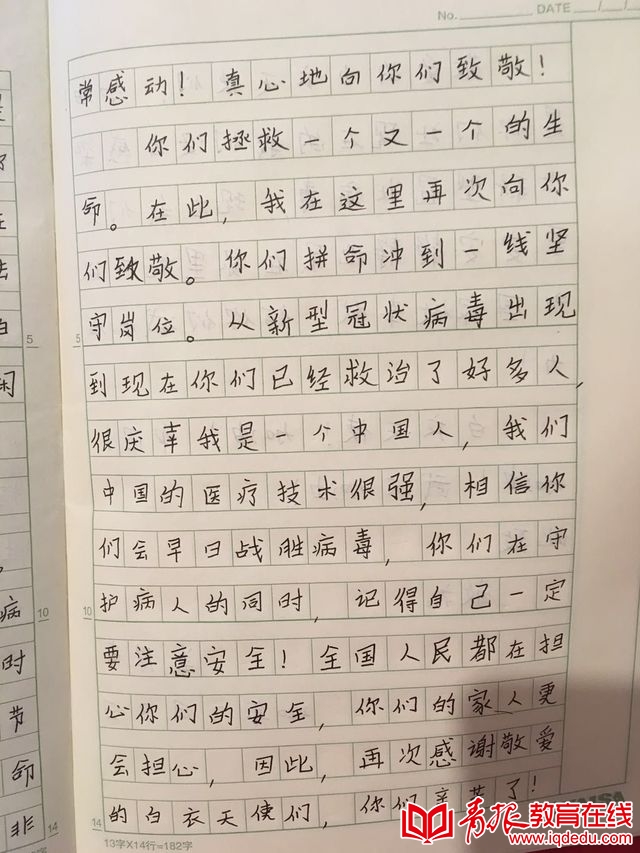 No. DATE / /
常感动！真心地向你们致敬！
你们拯救一个又一个的生
命。在此，我在这里再次向你
们致敬。你们拼命冲到一线坚
守岗位。从新型冠状病毒出现
到现在你们已经救治了好多人，
很庆幸我是一个中国人，我们
中国的医疗技术很强，相信你
们会早日战胜病毒，你们在守
护病人的同时，记得自己一定
要注意安全！全国人民都在担
心你们的安全，你们的家人更
会担心，因此，再次感谢敬爱
的白衣天使们，你们辛苦了！
5
10
14
13字X14行=182字
5
闲
病
10
时
节
命
非
14
青报教育在线
www.iqdedu.com